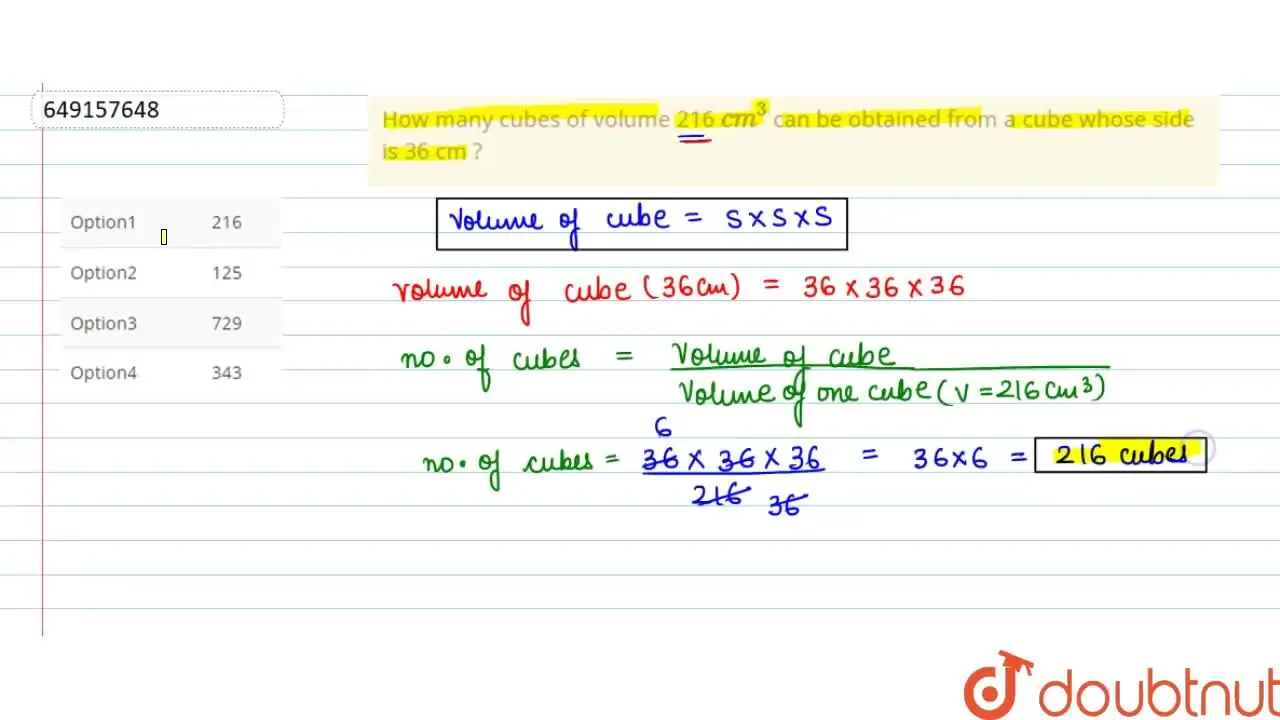 649157648
How many cubes of volume 216 cm³ can be obtained from a cube whose side
is 36 cm ?
Option1 216
Option2 125
Option3 729
Option4 343
Volume of cube = S×S×S
volume of cube (36cm) = 36 × 36 × 36
no. of cubes = Volume of cube
Volume of one cube (V = 216 cm³)
6
no. of cubes = 36 × 36 × 36 = 36×6 = 216 cubes
216 36
doubtnut